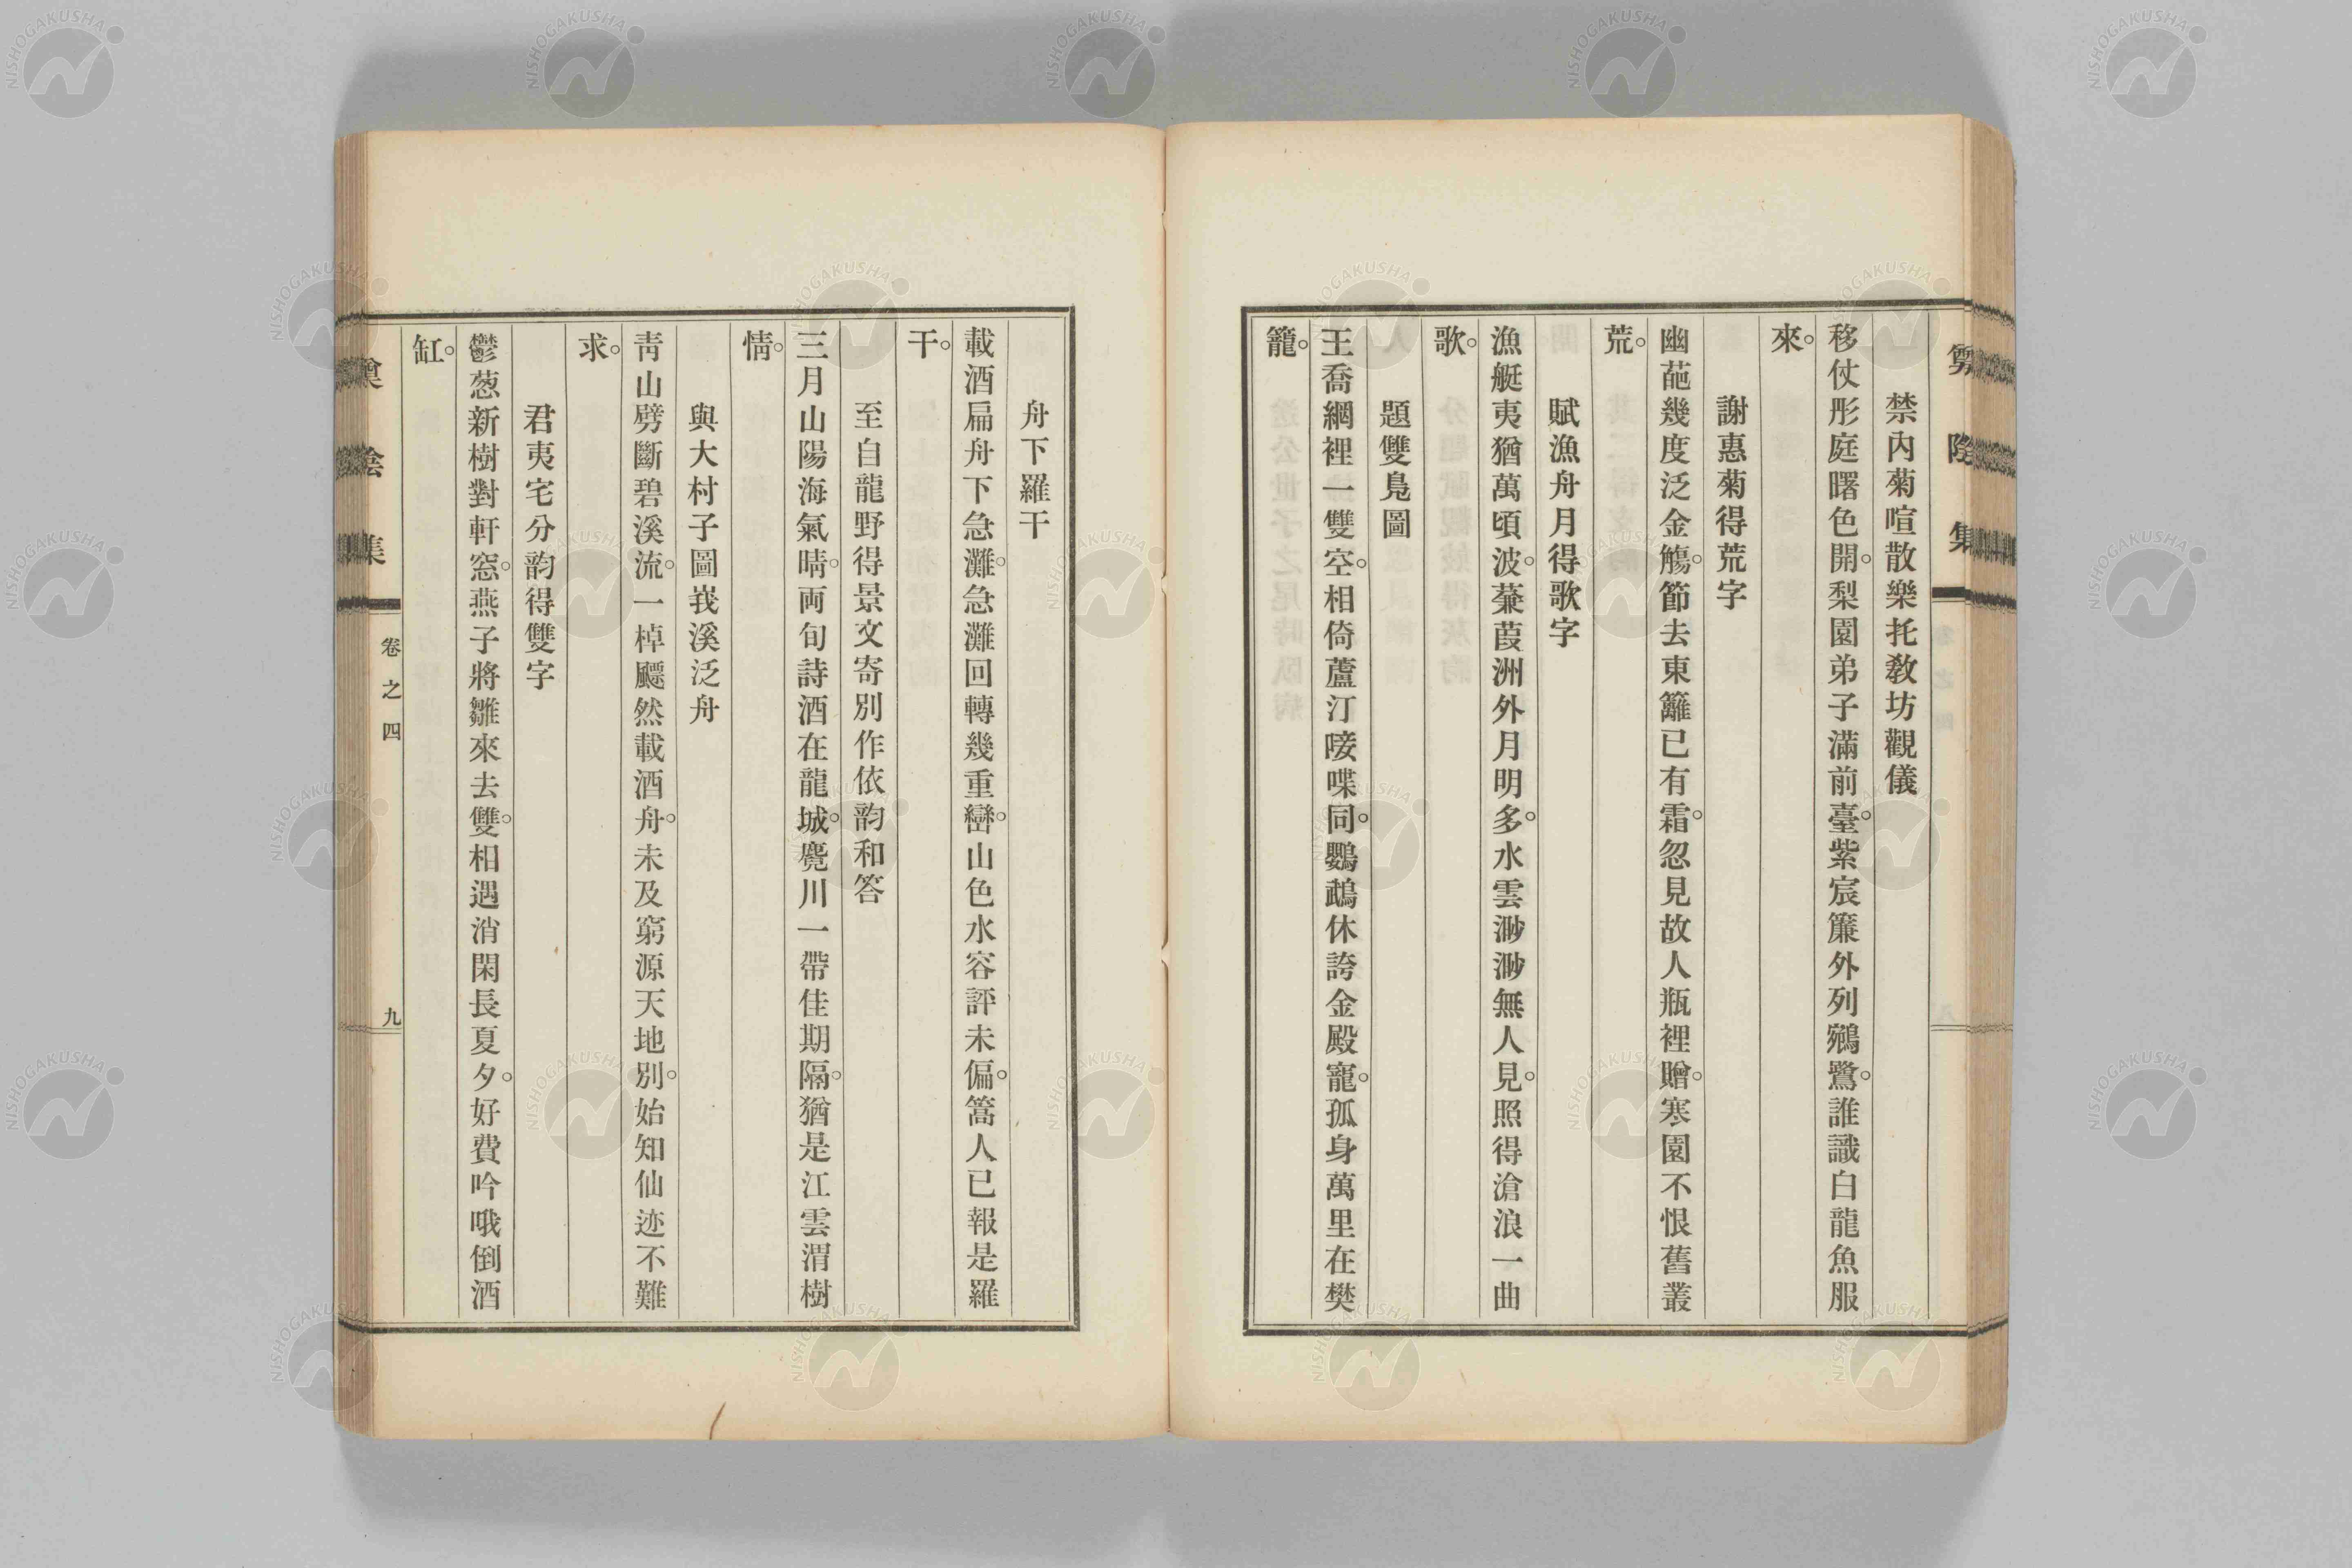 禁內菊喧散樂托敎坊觀儀
移仗彤庭曙色開。梨園弟子滿前臺。紫宸簾外列鵷鷺。誰識白龍魚服
來。
謝惠菊得荒字
幽葩幾度泛金觴。節去東籬已有霜。忽見故人瓶裡贈。寒園不恨舊叢
荒。
賦漁舟月得歌字
漁艇夷猶萬頃波。蒹葭洲外月明多。水雲渺渺無人見。照得滄浪一曲
歌。
題雙鳧圖
王喬網裡一雙空。相倚蘆汀唼喋同。鸚鵡休誇金殿寵。孤身萬里在樊
籠。
舟下羅干
載酒扁舟下急灘。急灘回轉幾重巒。山色水容評未偏。篙人已報是羅
干。
至自龍野得景文寄別作依韵和答
三月山陽海氣晴。両旬詩酒在龍城。麑川一帶佳期隔。猶是江雲渭樹
情。
與大村子圖峩溪泛舟
靑山劈斷碧溪流。一棹颺然載酒舟。未及窮源天地別。始知仙迹不難
求。
君夷宅分韵得雙字
鬱葱新樹對軒窓。燕子將雛來去雙。相遇消閑長夏夕。好費吟哦倒酒
缸。
陰集
卷之四
九
NISHOGAKUSHA